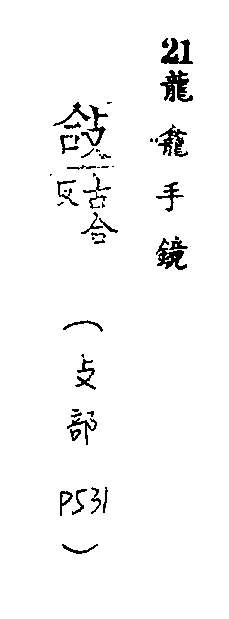 21龍龕手鏡
敆古合反
（攴部 P531）